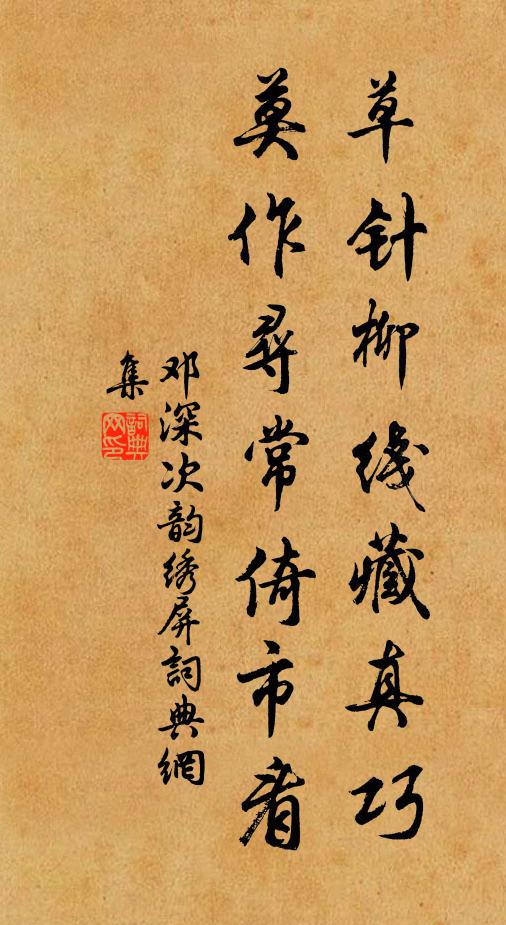 草针柳线藏真巧
莫作寻常倚市看
邓深次韵绣屏词典網
集
詞典
网印